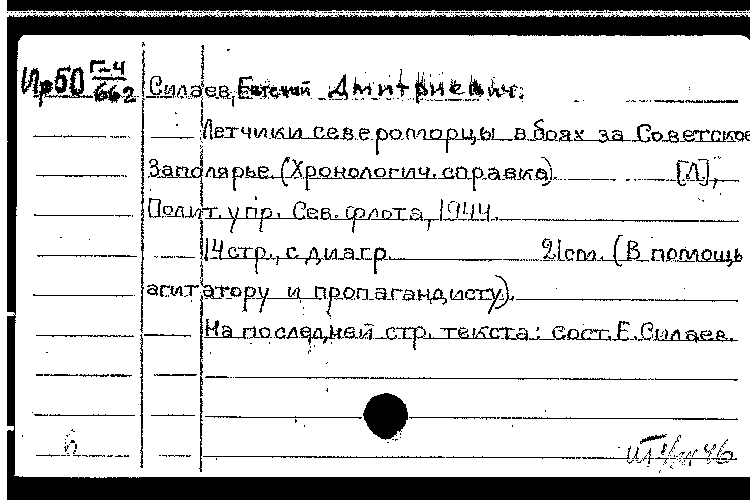 Ир50 Г-4/662
Силаев, Евгений Дмитриевич.
Летчики североморцы в боях за Советское
Заполярье. (Хронологич. справка). [Л],
Полит. упр. Сев. флота, 1944.
14 стр., с диагр. 21 см. (В помощь
агитатору и пропагандисту).
На последней стр. текста: сост. Е. Силаев.